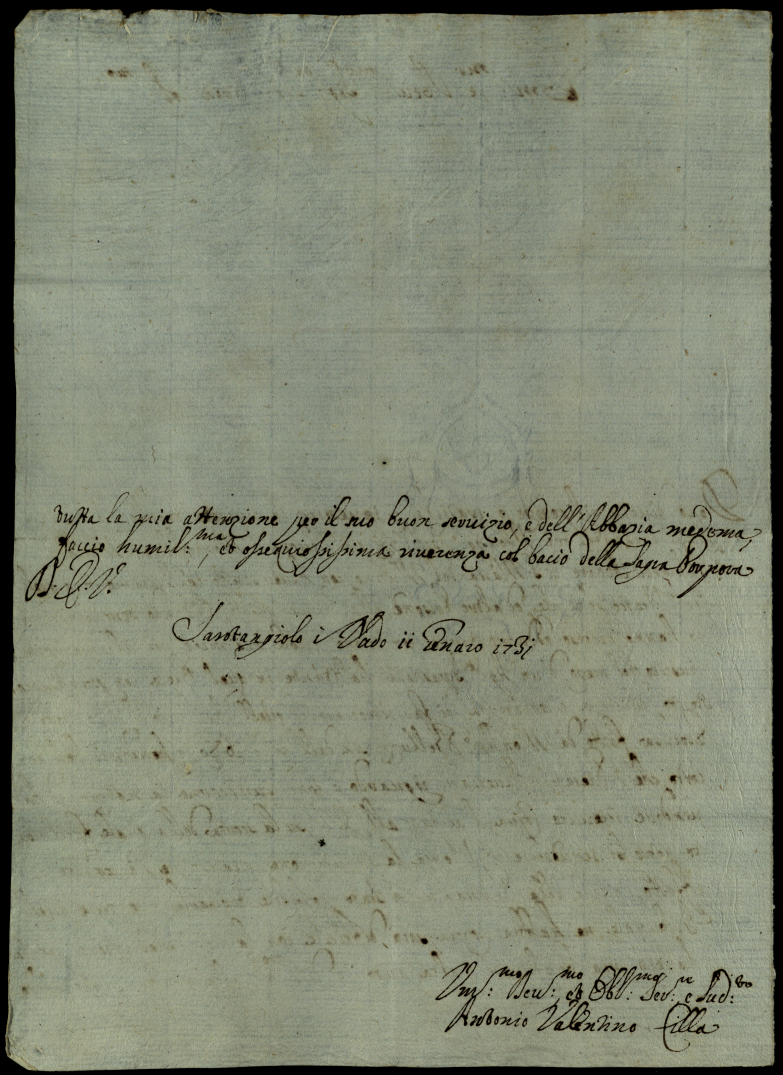 tutta la mia attenzione per il suo buon servizio, e dell'Abbazia medema,
faccio humil:ma, et ossequiosissima riverenza col bacio della Sagra Porpora
D: E: V:
Santangiolo i Vado 11 Genaro 1731
Um:mo Dev:mo et Obb:mo Ser:re e Sud:to
Antonio Valentino Cilla